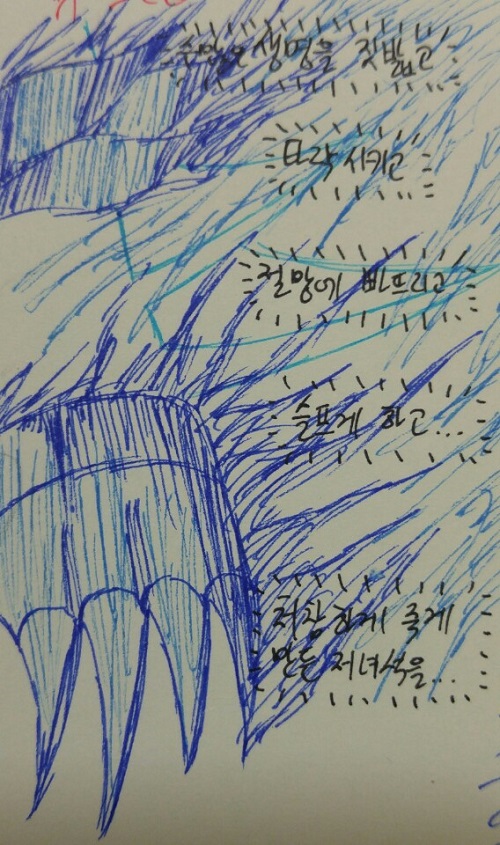 수많은 생명을 짓밟고
타락시키고
절망에 빠뜨리고
슬프게 하고...
처참하게 죽게
만든 저녀석을...